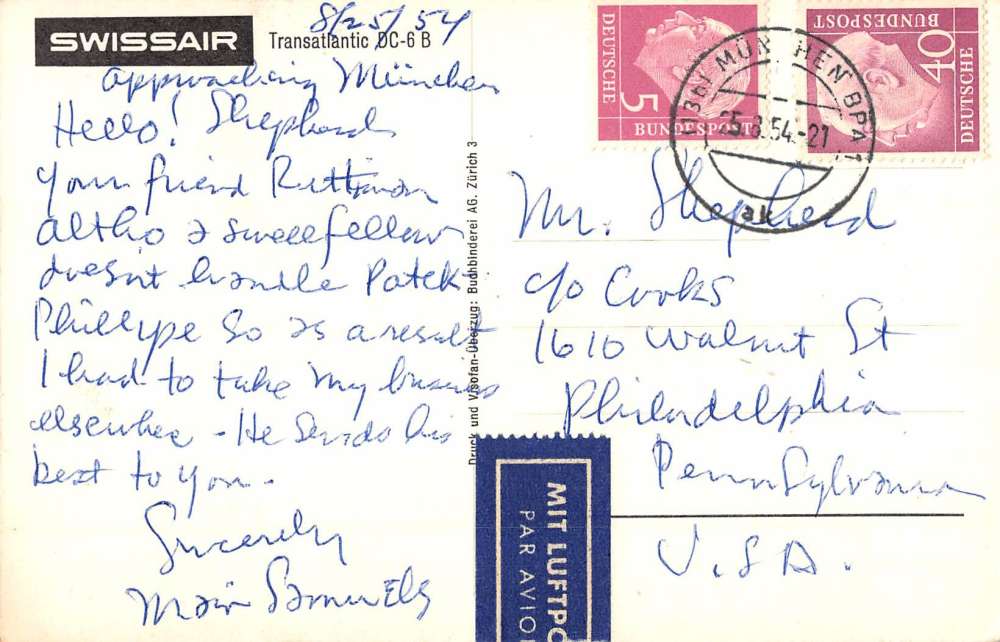 SWISSAIR
Transatlantic DC-6 B
8/25/54
approaching München
Hello! Shepherd
your friend
altho a sweell fellow
doesn't handle Patek
Phillype so as a result
I had to take my business
elsewhee - He sends his
best to you.
Sincerely
Druck und Visofan-Überzug: Buchbinderei AG. Zürich 3
DEUTSCHE
5
BUNDESPOST
BUNDESPOST
40
DEUTSCHE
(13b) MÜNCHEN BPA 1
25.8.54.-21
ak
Mr. Shepherd
c/o Cooks
1616 Walnut St
Philadelphia
Pennsylvania
U.S.A.
MIT LUFTPO
PAR AVION